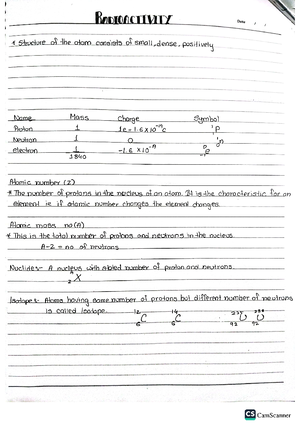 RADIOACTIVITY
Date / /
* Structure of the atom consists of small, dense, positively
Name Mass Charge Symbol
Proton 1 1e = 1.6 x 10⁻¹⁹c ¹₁P
Neutron 1 0 ¹₀n
electron 1/1840 -1.6 x 10⁻¹⁹ ⁰₋₁e
Atomic number (Z)
* The number of protons in the nucleus of an atom. It is the characteristic for an
element ie if atomic number changes the element changes.
Atomic mass no (A)
* This is the total number of protons and neutrons in the nucleus
A-Z = no of neutrons
Nuclides:- A nucleus with a stated number of proton and neutrons.
ᴬzX
Isotopes:- Atoms having same number of protons but different number of neutrons
is called Isotope. ¹²₆C ¹⁴₆C ²³⁵₉₂U ²³⁸₉₂U
CS CamScanner